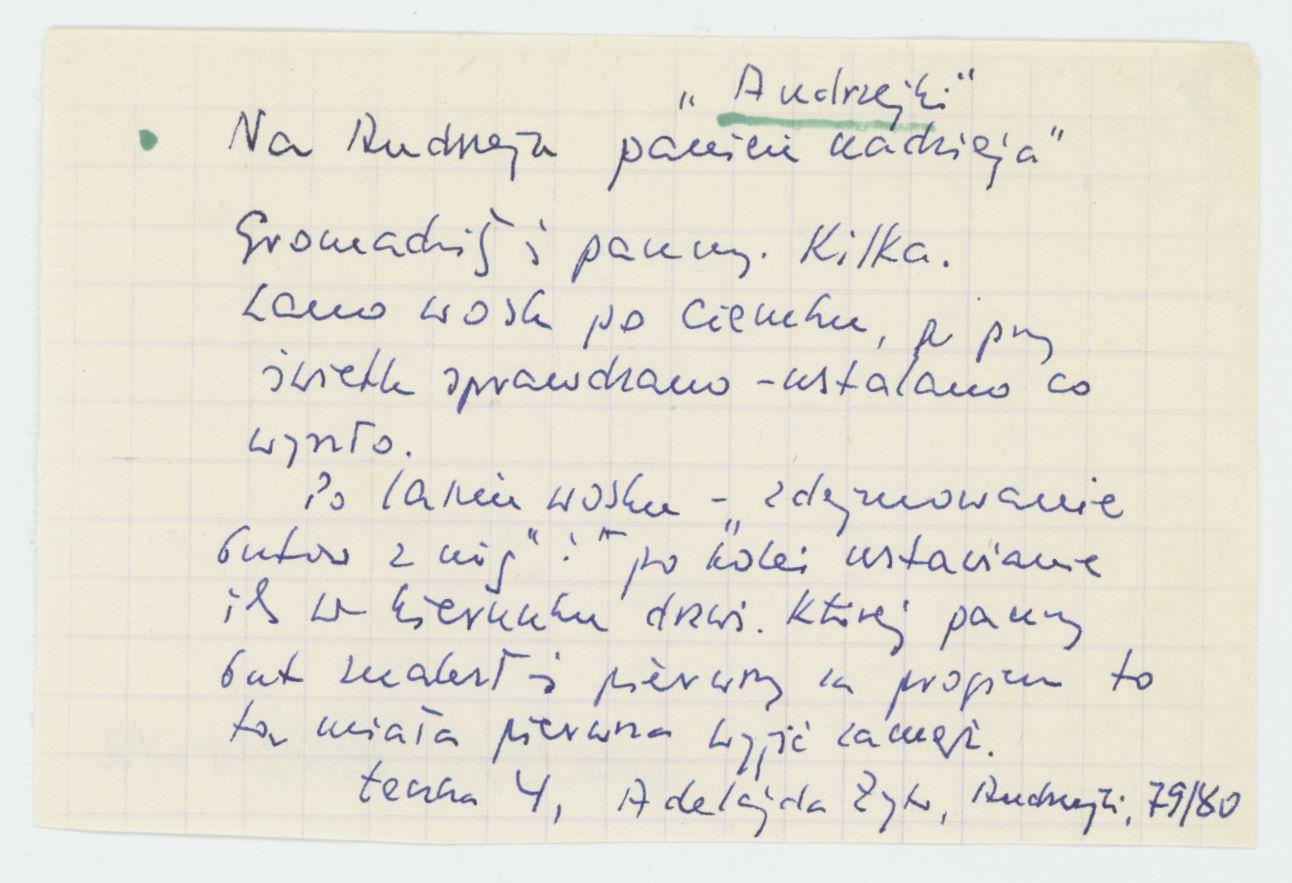 „Andrzejki"
Na Andrzeja pannom nadzieja"
Gromadziły się panny. Kilka.
Lano wosk po ciemku, a przy
świetle sprawdzano - ustalano co
wyszło.
Po laniu wosku - „zdejmowanie
butów z nóg" i po kolei ustawianie
ich w kierunku drzwi. Której panny
but znalazł się pierwszy za progiem to
ta miała pierwsza wyjść zamąż.
teczka 4, Adelajda Żyła, Andrzejki, 79/80